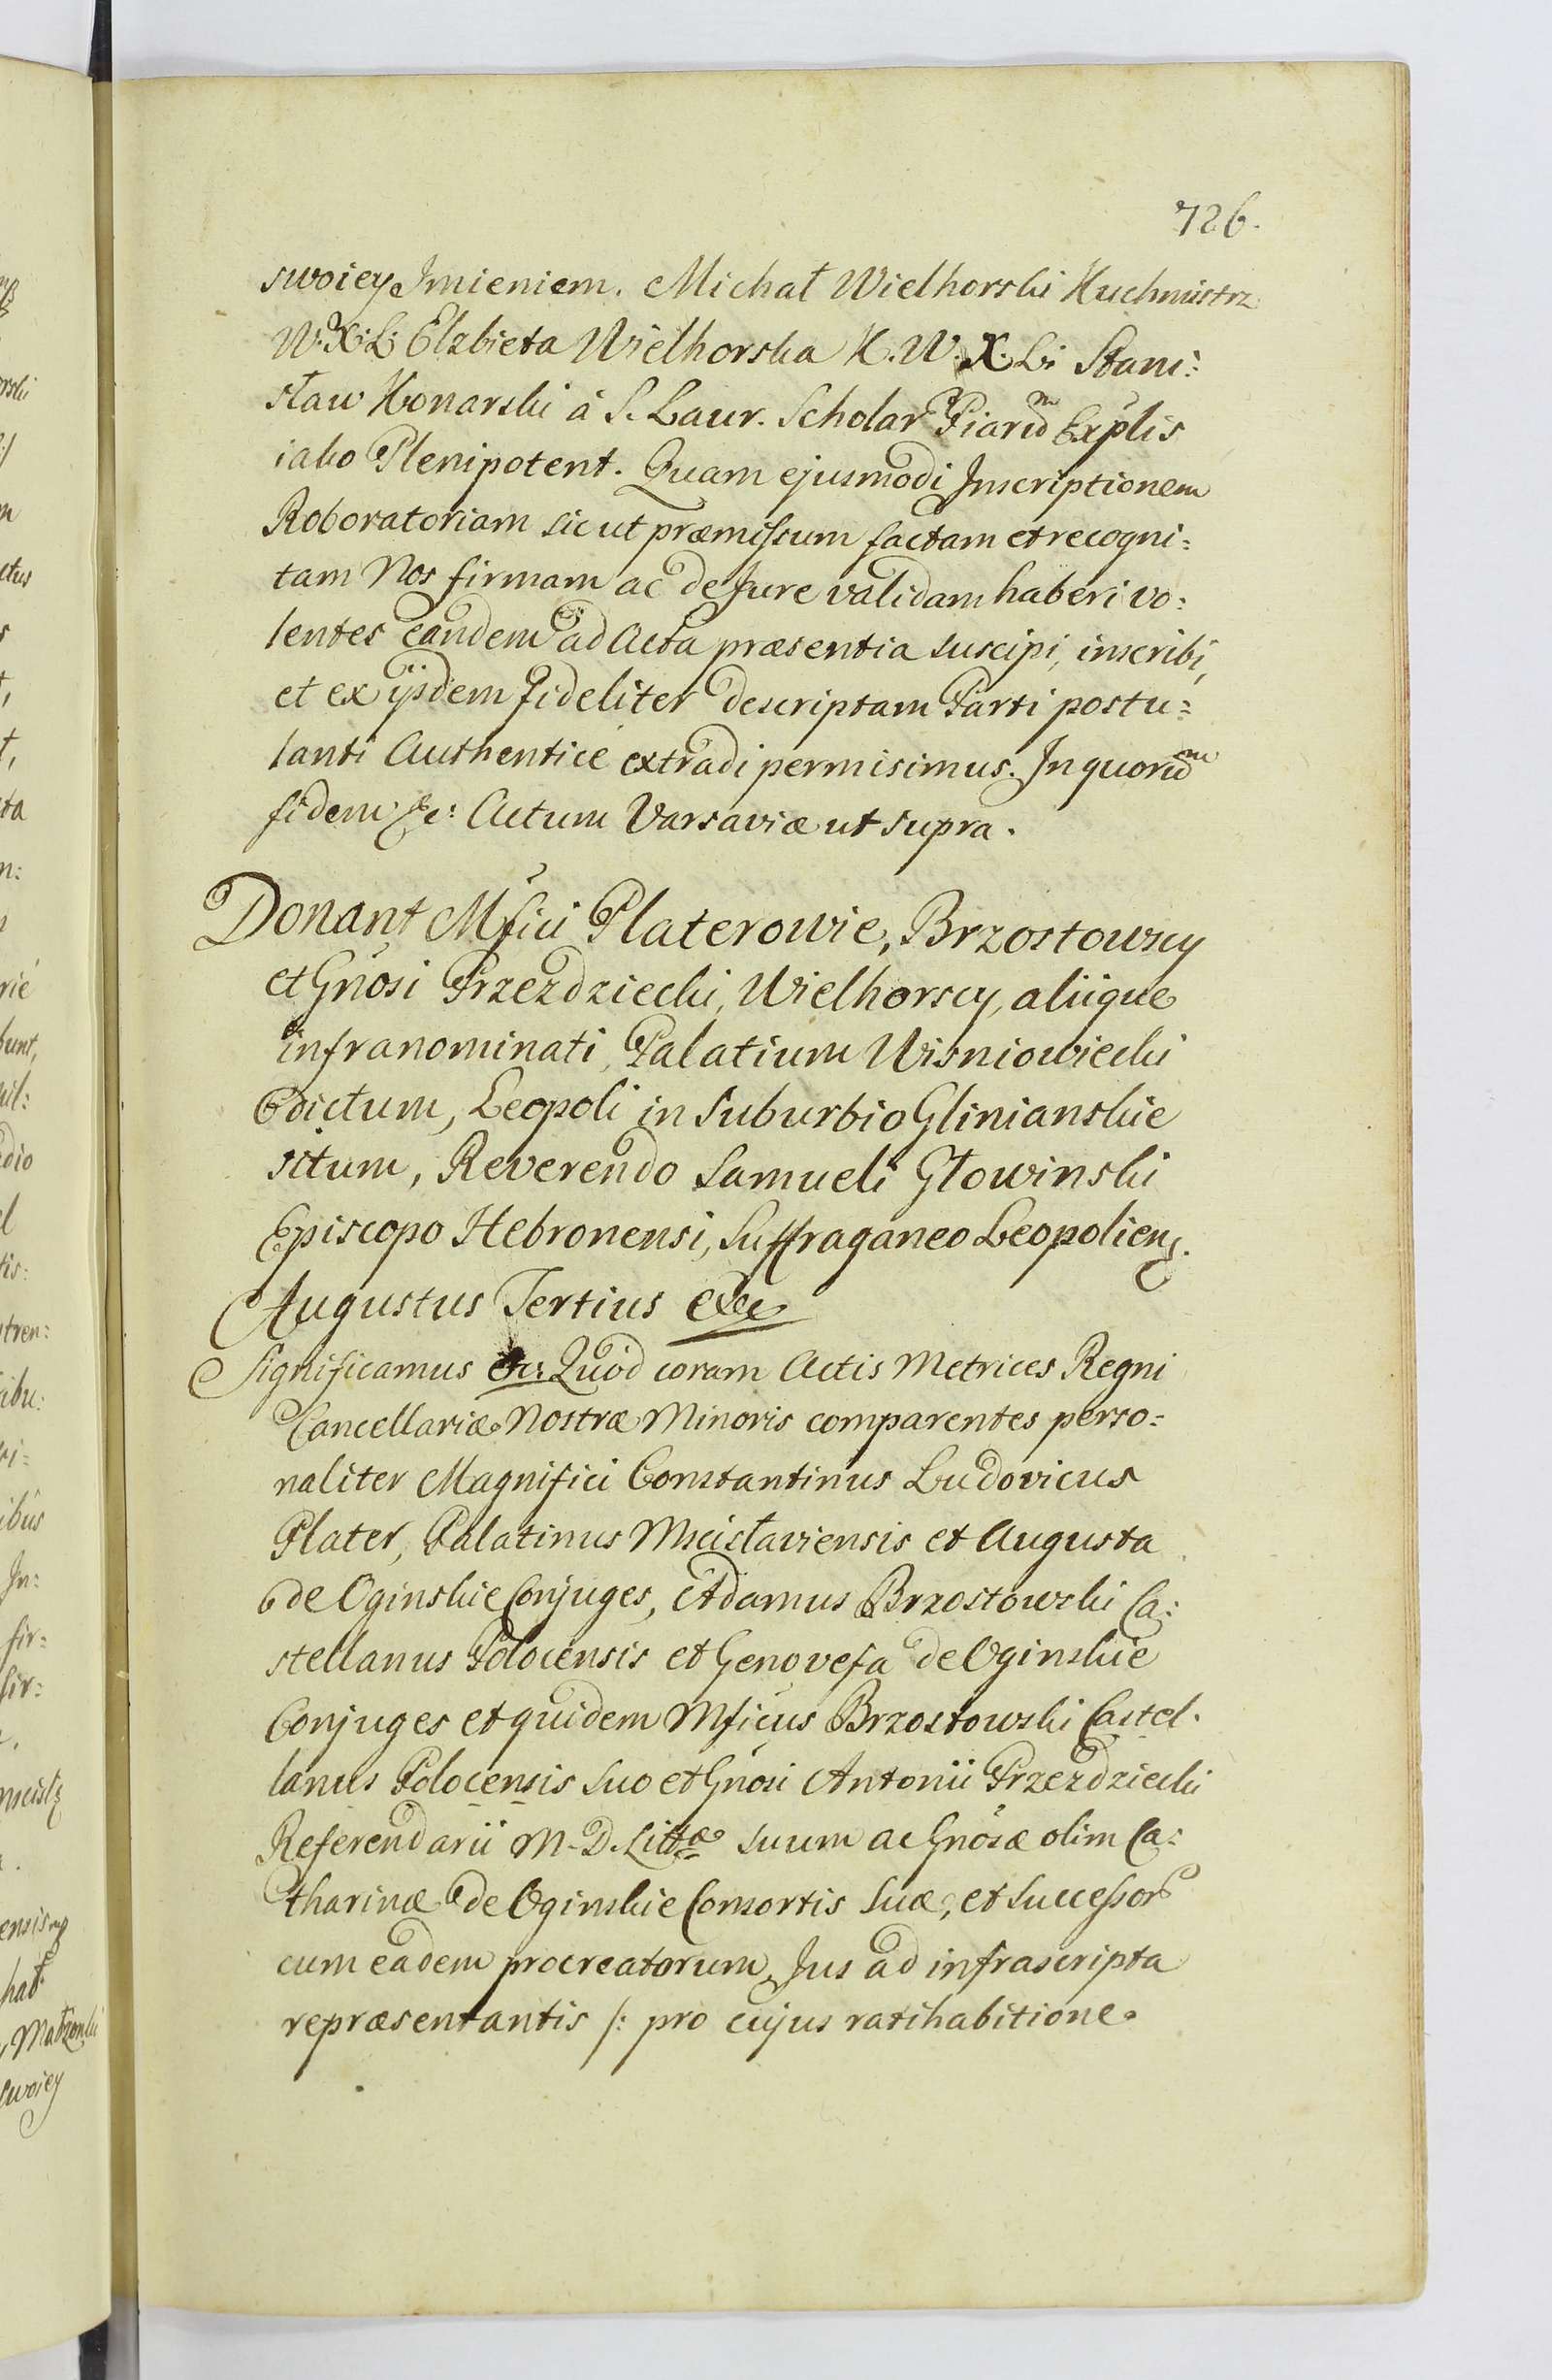 726.
swoiey Imieniem. Michał Wielhorski Kuchmistrz
W: X: L: Elzbieta Wielhorska K. W. X. Li Stani:
sław Konarski á S. Laur. Scholar Piarū^m Exp̃lis
iako Plenipotent. Quam ejusmodi Inscriptionem
Roboratoriam sic ut præmissum factam et recogni:
tam Nos firmam ac de Jure validam haberi vo:
lentes eandem ad Acta præsentia suscipi, inscribi,
et ex ijsdem fideliter descriptam Parti postu:
lanti Authenticé extradi permisimus. In quorū^m
fidem &c: Actum Varsaviæ ut supra.
Donant Mf̃ici Platerowie, Brzostowscy
et Gñosi Przezdziecki, Wielhorscy, aliique
infranominati, Palatium Wisniowiecki
dictum, Leopoli in Suburbio Glinianskie
situm, Reverendo Samueli Głowinski
Episcopo Hebronensi, Suffraganeo Leopoliens.
Augustus Tertius etc
Significamus etc. Quód coram Actis Metrices Regni
Cancellariæ Nostræ Minoris comparentes perso:
naliter Magnifici Constantinus Ludovicus
Plater, Palatinus Mscisłaviensis et Augusta
de Oginskie Conjuges, Adamus Brzostowski Ca:
stellanus Polocensis et Genovefa de Oginskie
Conjuges et quidem Mf̃icus Brzostowski Castel.
lanus Polocensis suo et Gñosi Antonii Przezdziecki
Referendarii M. D. Littæ suum ac Gñosæ olim Ca:
tharinæ de Oginskie Consortis suæ, et Successor
cum eadem procreatorum, Jus ad infrascripta
repræsentantis /: pro cujus ratihabitione